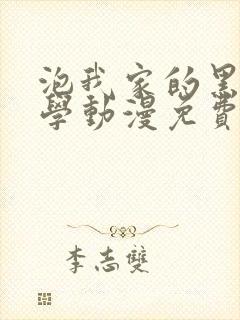 泡我家的黑
學動漫免費
李志雙